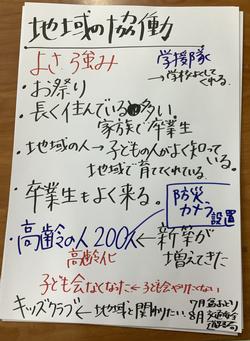 地域の協働
よさ 強み
学援隊
→学校をよくして
くれる。
・お祭り
・長く住んでいる 多い
家族で卒業生
・地域の人→子どもの人がよく知っている
地域で育ててくれている。
・卒業生もよく来る。
防災
カメラ
設置
・高齢の人200人←新築が
高齢化
増えてきた
子ども会なくなった←子ども会やりたくない
キッズクラブ←地域と関わりたい。
7月
8月